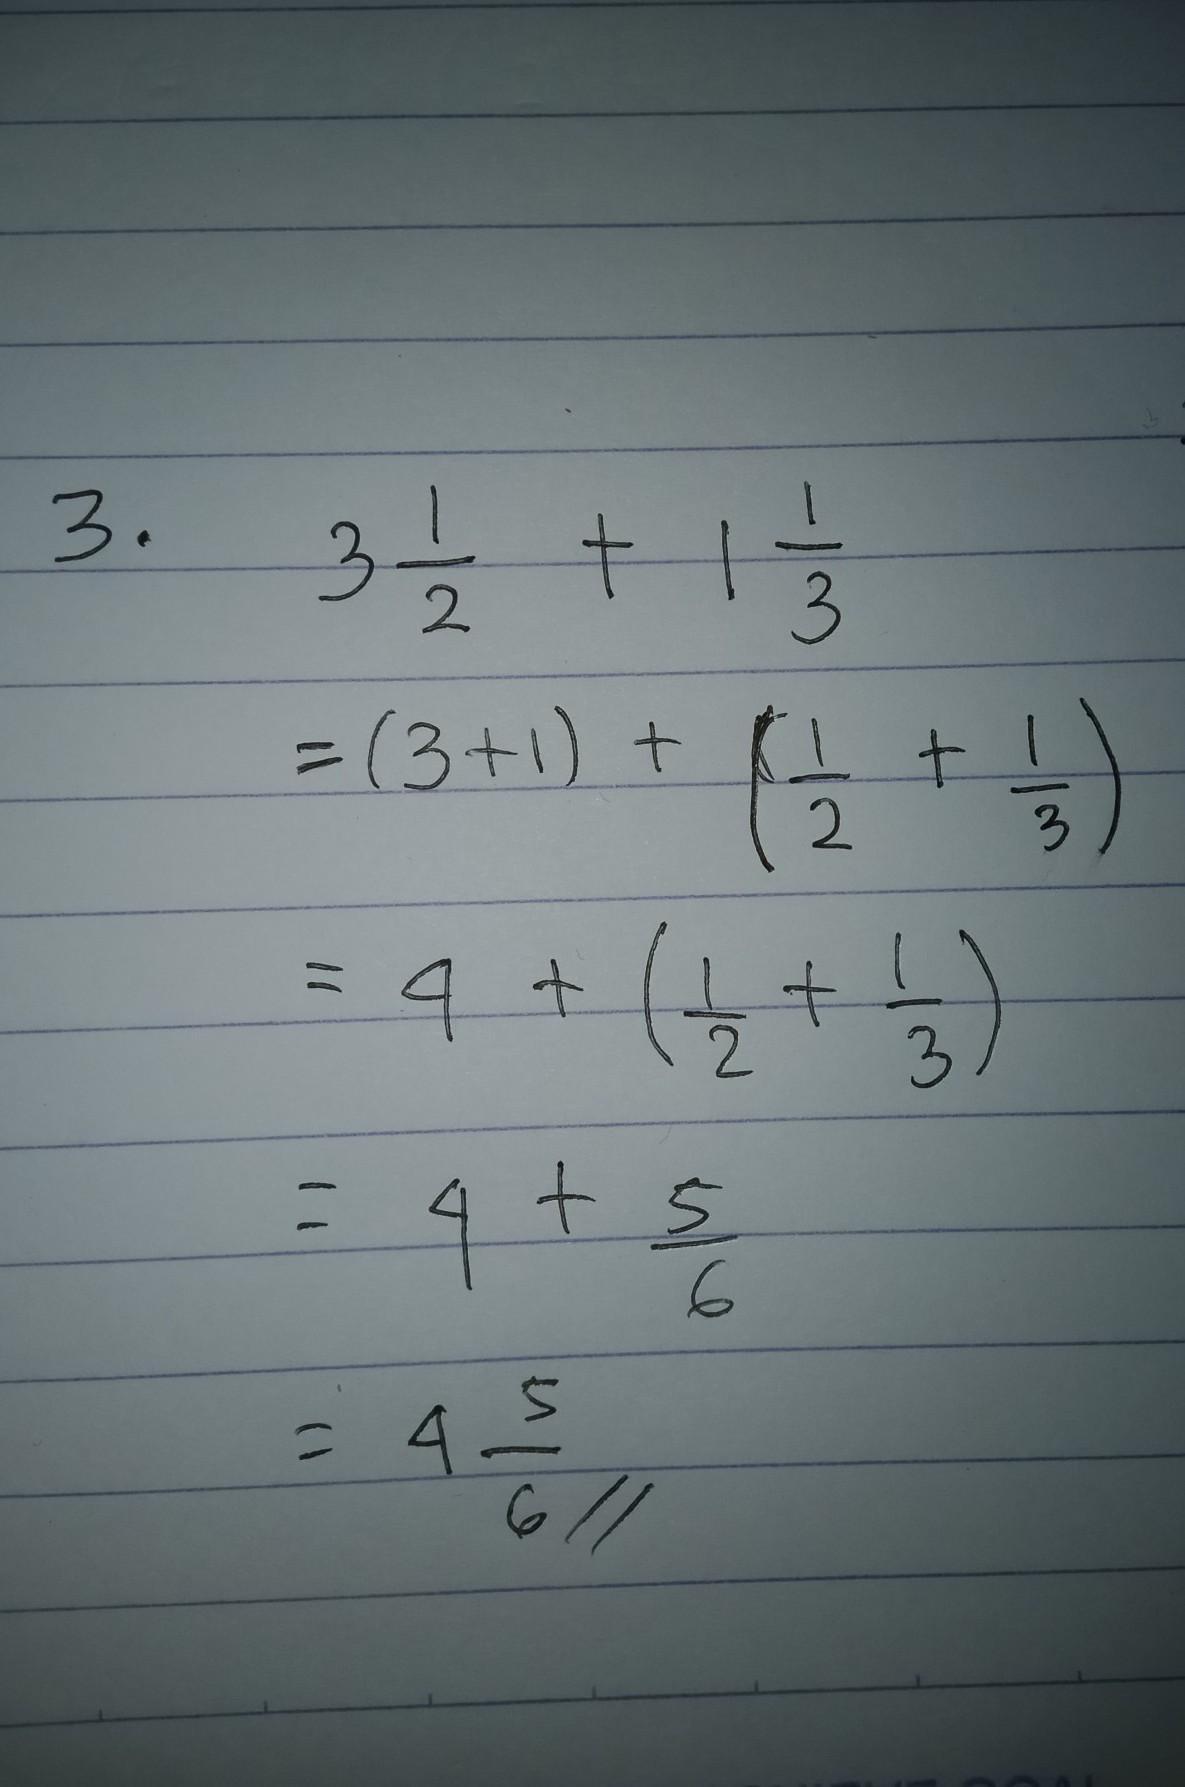 3. 3 1/2 + 1 1/3
= (3+1) + (1/2 + 1/3)
= 4 + (1/2 + 1/3)
= 4 + 5/6
= 4 5/6 //